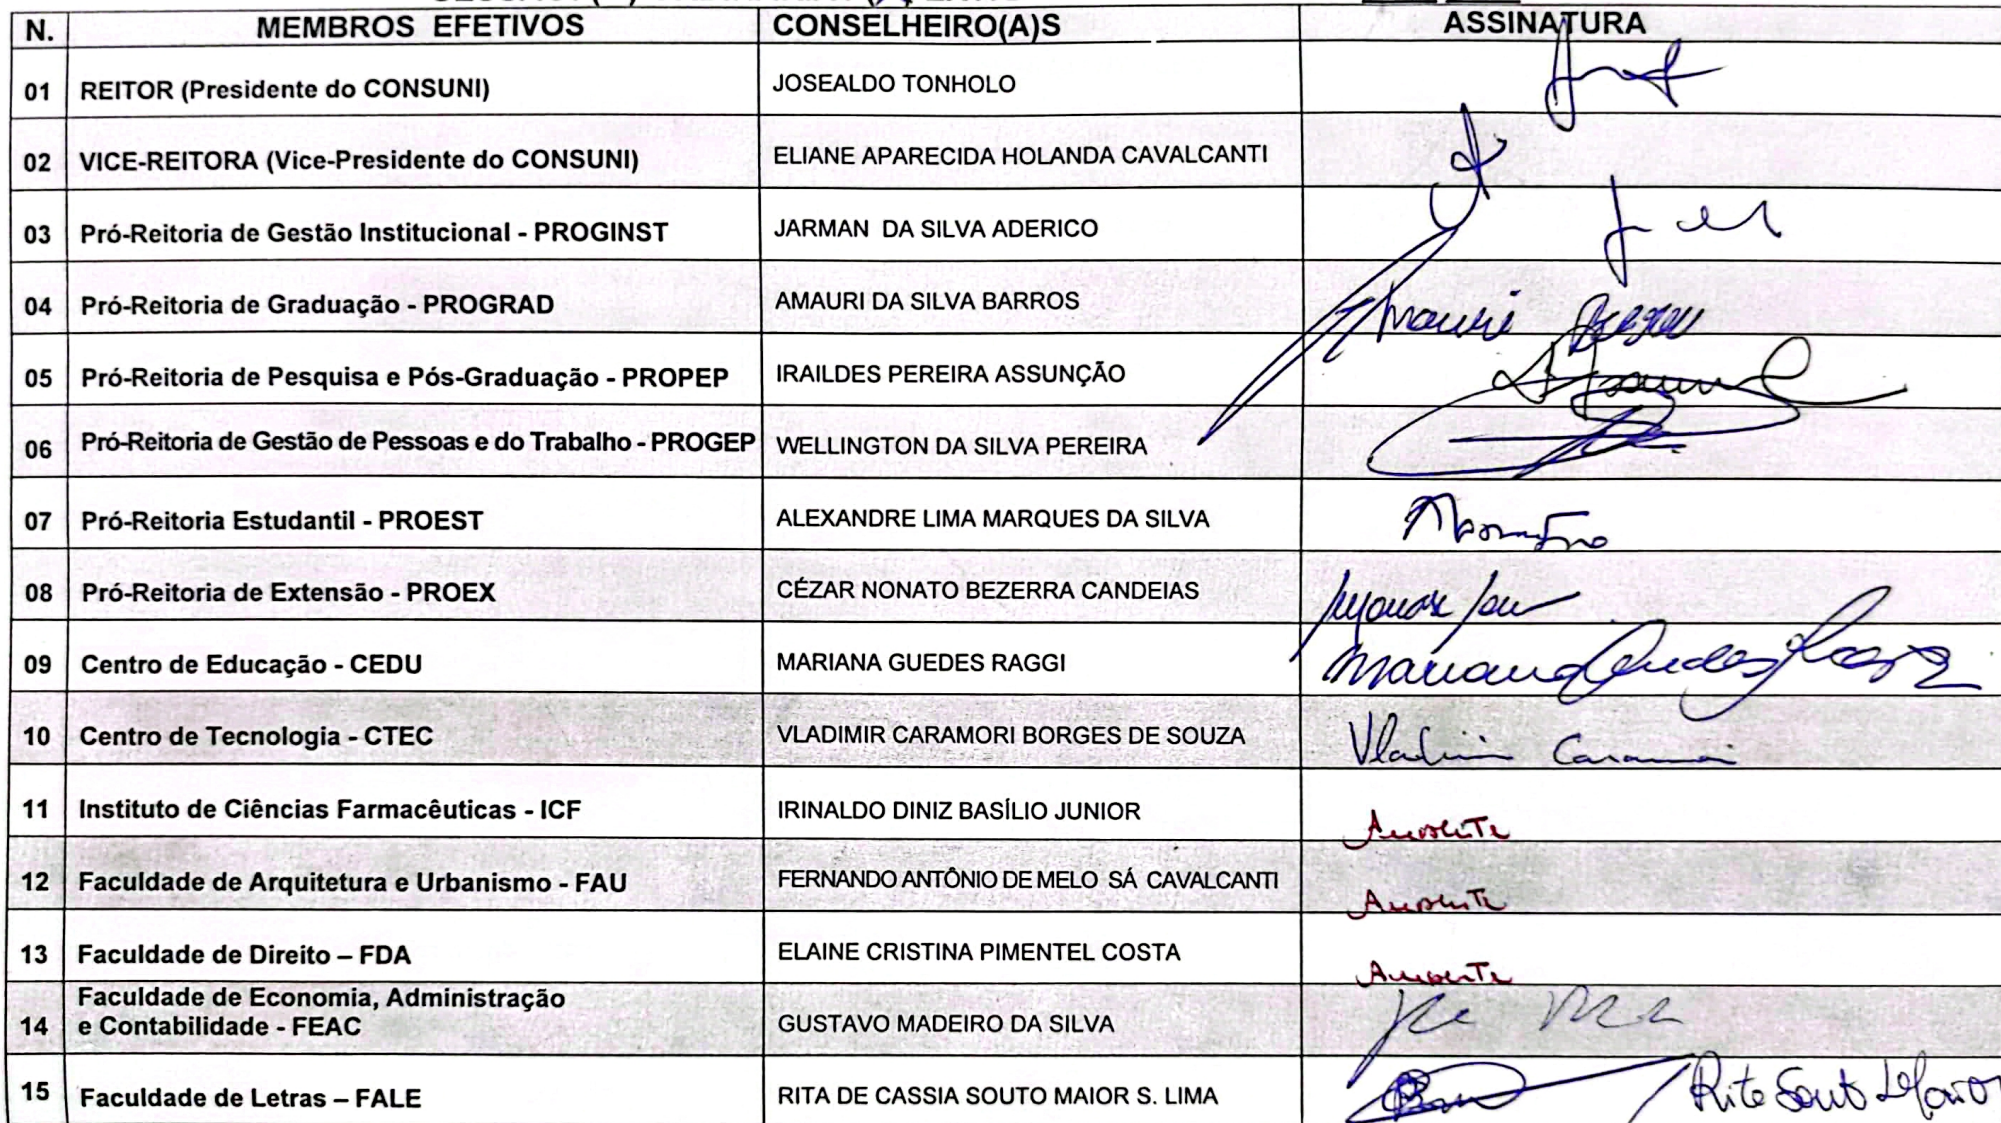 N. MEMBROS EFETIVOS CONSELHEIRO(A)S ASSINATURA
01 REITOR (Presidente do CONSUNI) JOSEALDO TONHOLO
02 VICE-REITORA (Vice-Presidente do CONSUNI) ELIANE APARECIDA HOLANDA CAVALCANTI
03 Pró-Reitoria de Gestão Institucional - PROGINST JARMAN DA SILVA ADERICO
04 Pró-Reitoria de Graduação - PROGRAD AMAURI DA SILVA BARROS Amauri Barros
05 Pró-Reitoria de Pesquisa e Pós-Graduação - PROPEP IRAILDES PEREIRA ASSUNÇÃO
06 Pró-Reitoria de Gestão de Pessoas e do Trabalho - PROGEP WELLINGTON DA SILVA PEREIRA
07 Pró-Reitoria Estudantil - PROEST ALEXANDRE LIMA MARQUES DA SILVA
08 Pró-Reitoria de Extensão - PROEX CÉZAR NONATO BEZERRA CANDEIAS
09 Centro de Educação - CEDU MARIANA GUEDES RAGGI Mariana Guedes Raggi
10 Centro de Tecnologia - CTEC VLADIMIR CARAMORI BORGES DE SOUZA Vladimir Caramori
11 Instituto de Ciências Farmacêuticas - ICF IRINALDO DINIZ BASÍLIO JUNIOR Ausente
12 Faculdade de Arquitetura e Urbanismo - FAU FERNANDO ANTÔNIO DE MELO SÁ CAVALCANTI Ausente
13 Faculdade de Direito – FDA ELAINE CRISTINA PIMENTEL COSTA Ausente
Faculdade de Economia, Administração
14 e Contabilidade - FEAC GUSTAVO MADEIRO DA SILVA
15 Faculdade de Letras – FALE RITA DE CASSIA SOUTO MAIOR S. LIMA Rita Souto Maior